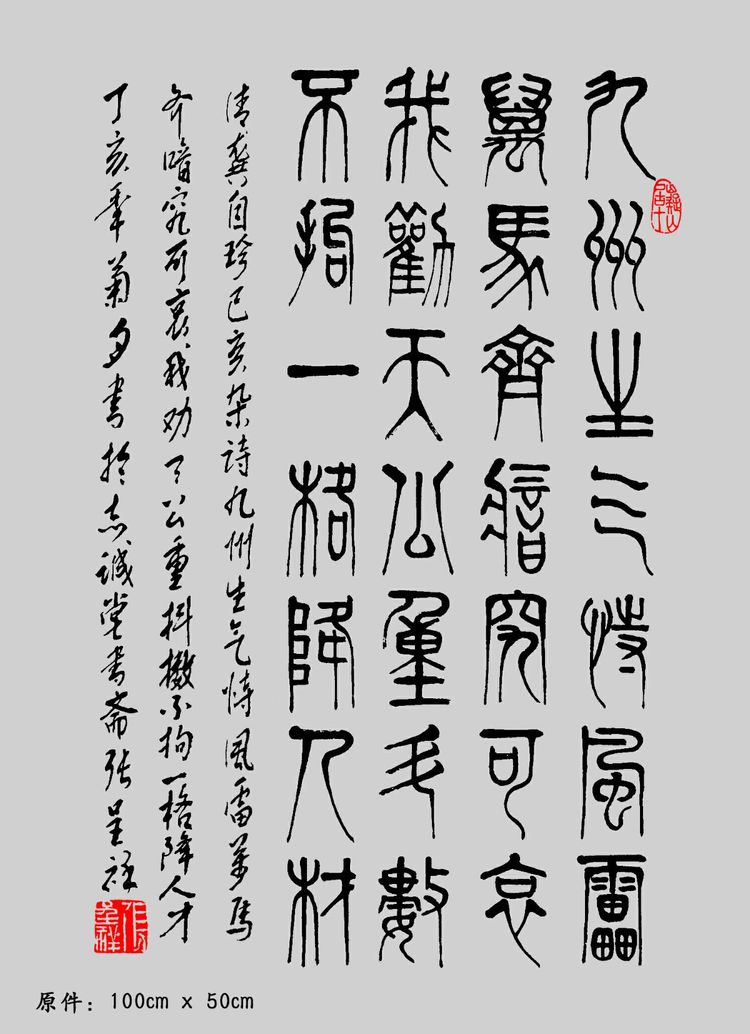 九州生气恃風雷
萬馬齊喑究可哀
我勸天公重斗數
不拘一格降人材
清龚自珍己亥杂诗九州生气恃風雷萬馬
齐喑究可哀我劝天公重抖擞不拘一格降人才
丁亥年菊月书於志诚堂书斋张呈祥
原件：100cm x 50cm